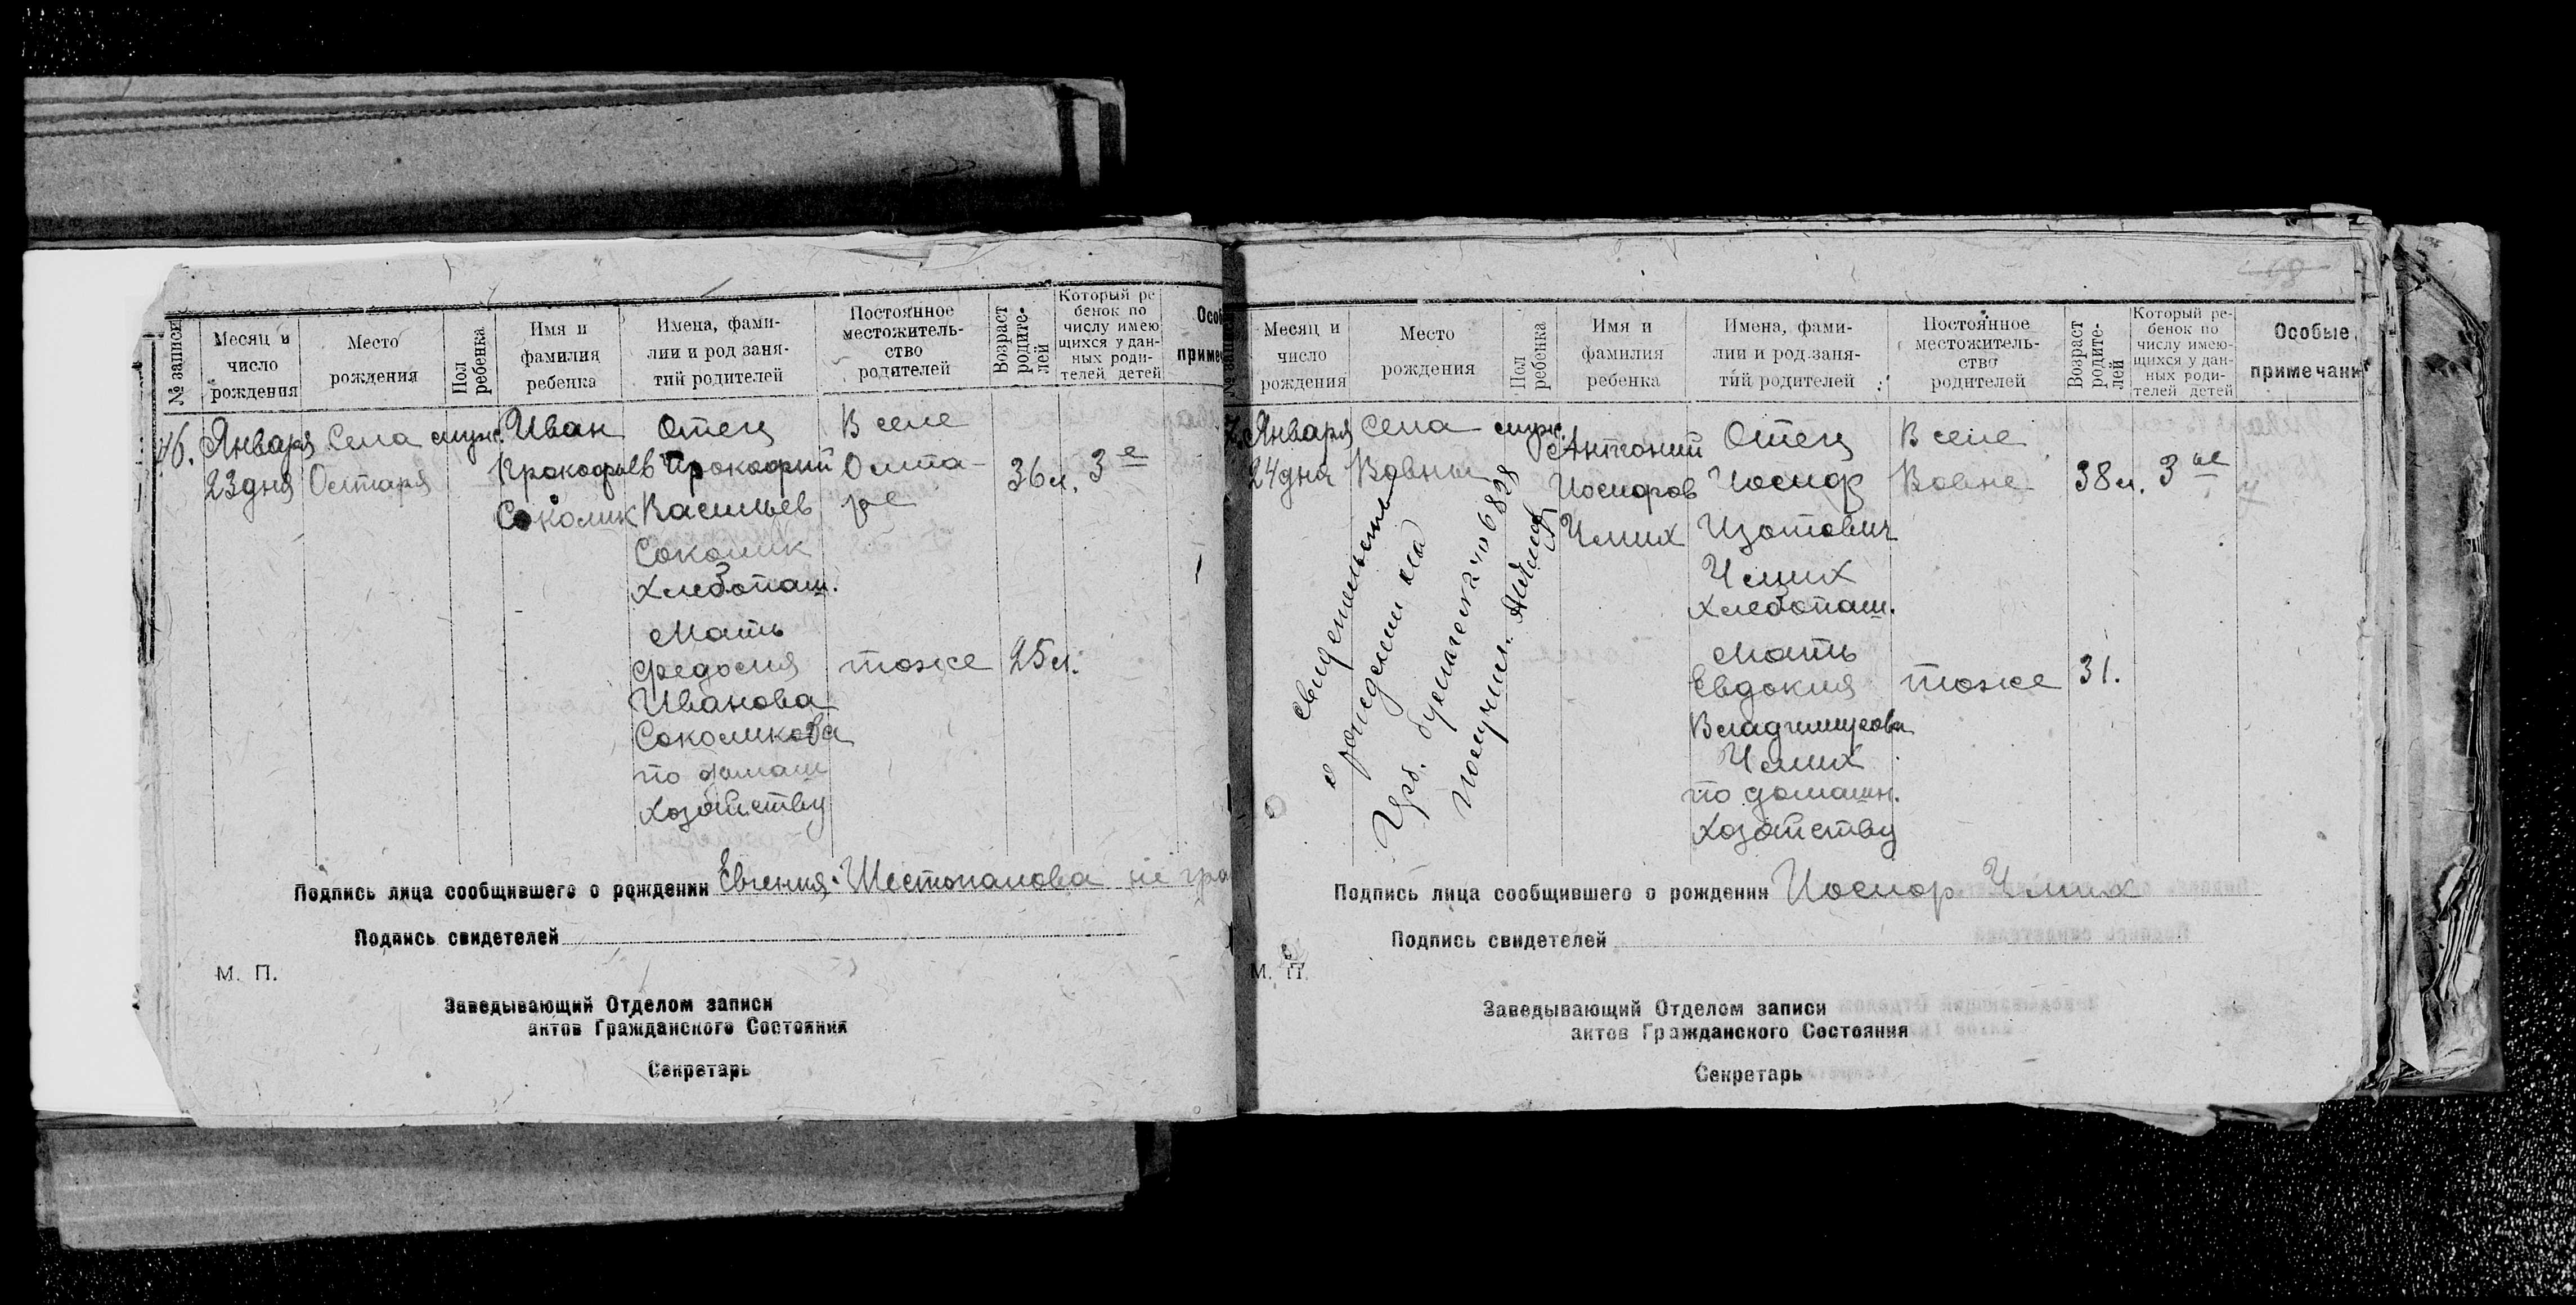 № записи
Месяц и число рождения
Место рождения
Пол ребенка
Имя и фамилия ребенка
Имена, фамилии и род занятий родителей
Постоянное местожительство родителей
Возраст родителей
Который ребенок по числу имеющихся у данных родителей детей
46.
Января
23 дня
Села
Остаря
муж.
Иван
Прокофьев
Соколик
Отец
Прокофий
Васильев
Соколик
Хлебопаш.
Мать
Федосия
Иванова
Соколикова
по домаш
хозяйству
В селе
Оста-
ре
тоже
36 л.
25 л.
3 е
Подпись лица сообщившего о рождении Евгения Шестопалова не гра
Подпись свидетелей
М. П.
Заведывающий Отделом записи
актов Гражданского Состояния
Секретарь
68
Месяц и число рождения
Место рождения
Пол ребенка
Имя и фамилия ребенка
Имена, фамилии и род занятий родителей
Постоянное местожительство родителей
Возраст родителей
Который ребенок по числу имеющихся у данных родителей детей
Особые примечани
Января
24 дня
Села
Вовны
муж.
Антоний
Иосифов
Чмих
Отец
Иосиф
Изотович
Чмих
Хлебопаш.
Мать
Евдокия
Владимирова
Чмих
по домашн.
хозяйству
В селе
Вовне
тоже
38 л.
31.
3 ие
свидетельство
о рождении на
бумаге № 6828
получил.
Подпись лица сообщившего о рождении Иосиф Чмих
Подпись свидетелей
М. П.
Заведывающий Отделом записи
актов Гражданского Состояния
Секретарь